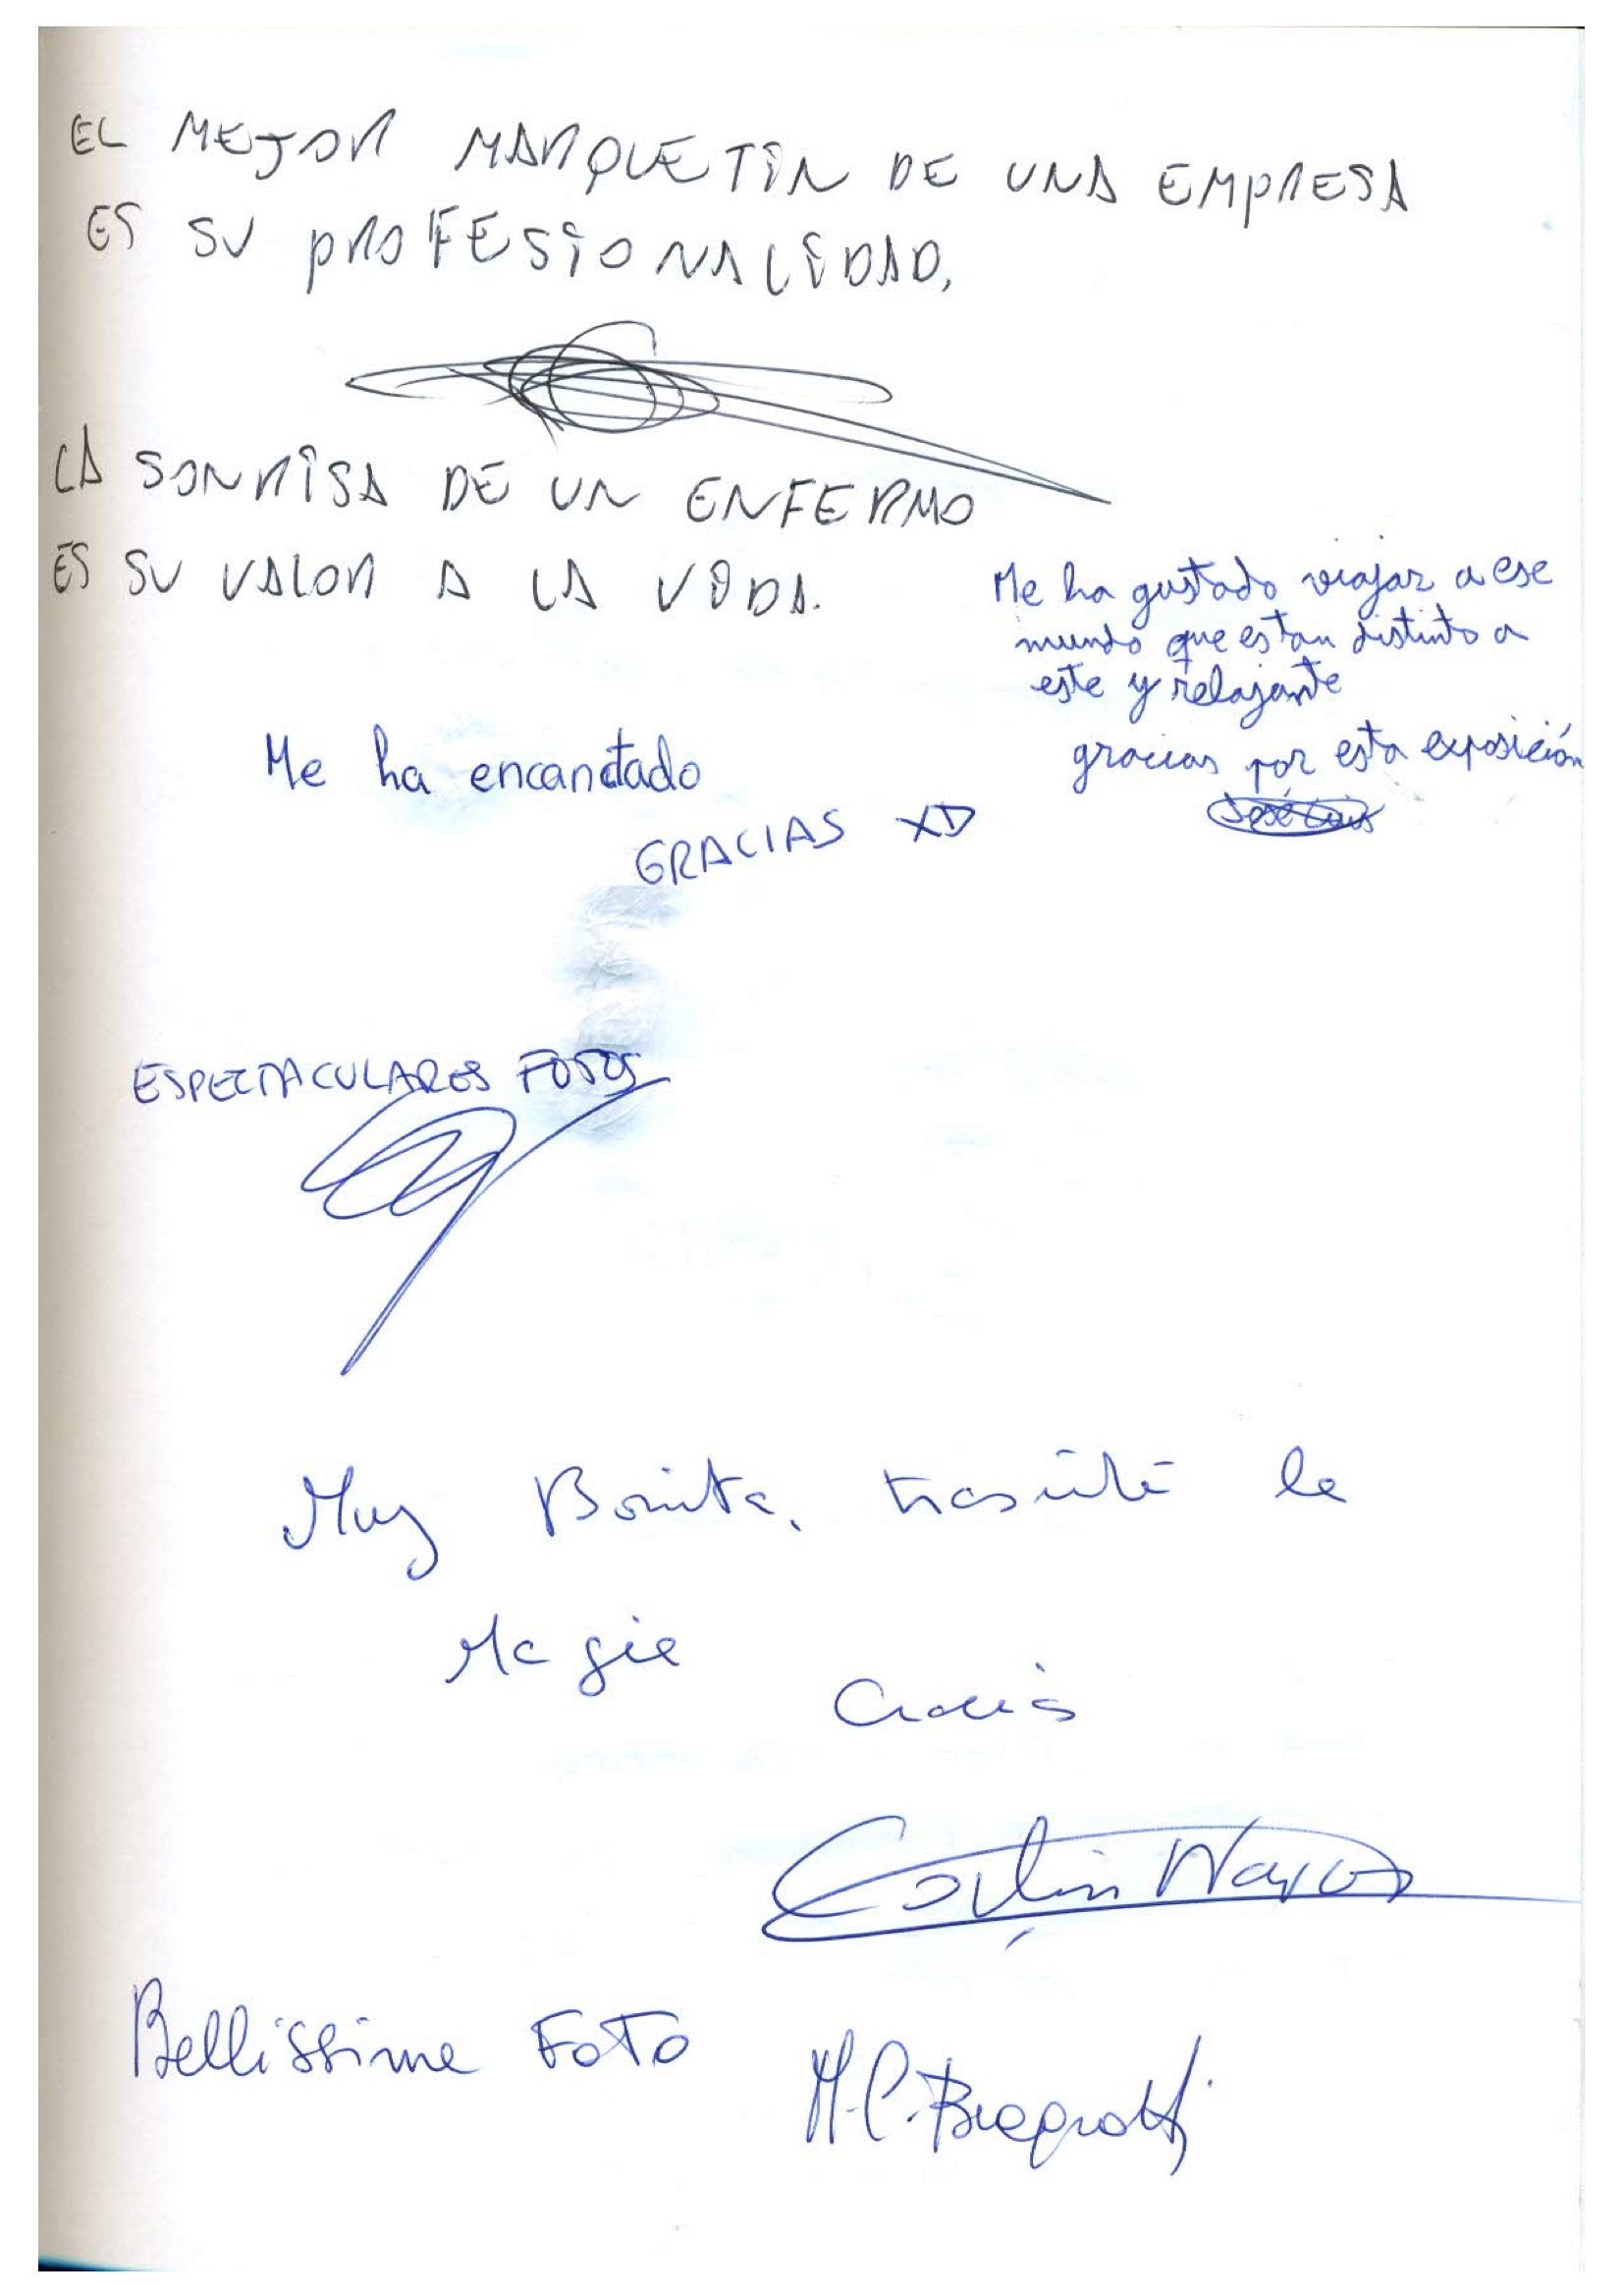 EL MEJOR MARQUETIN DE UNA EMPRESA
ES SU PROFESIONALIDAD,
LA SONRISA DE UN ENFERMO
ES SU VALOR A LA VIDA.
Me ha gustado viajar a ese
mundo que es tan distinto a
este y relajante
gracias por esta exposición
José Luis
Me ha encantado
GRACIAS XD
ESPECTACULARES FOTOS
Muy Bonita, la
Magia
Gracias
Bellissime FOTO